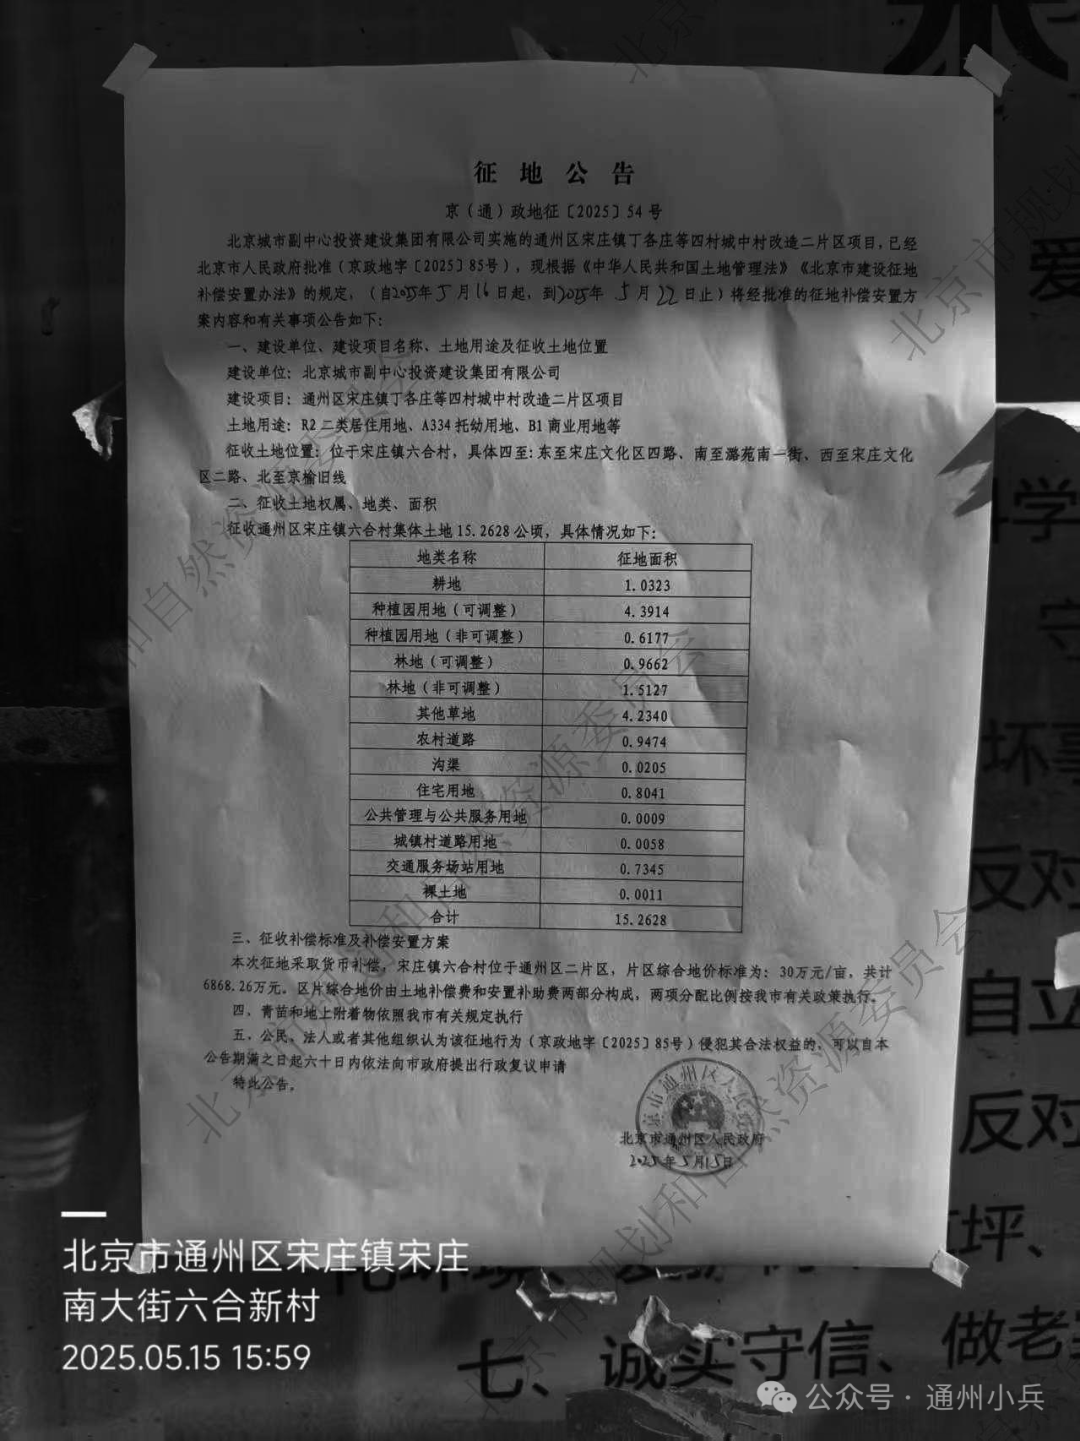 征地公告
京（通）政地征〔2025〕54号
北京城市副中心投资建设集团有限公司实施的通州区宋庄镇丁各庄等四村城中村改造二片区项目，已经
北京市人民政府批准（京政地字〔2025〕85号），现根据《中华人民共和国土地管理法》《北京市建设征地
补偿安置办法》的规定，（自2025年5月16日起，到2025年5月22日止）将经批准的征地补偿安置方
案内容和有关事项公告如下：
一、建设单位、建设项目名称、土地用途及征收土地位置
建设单位：北京城市副中心投资建设集团有限公司
建设项目：通州区宋庄镇丁各庄等四村城中村改造二片区项目
土地用途：R2二类居住用地、A334托幼用地、B1商业用地等
征收土地位置：位于宋庄镇六合村，具体四至：东至宋庄文化区四路、南至潞苑南一街、西至宋庄文化
区二路、北至京榆旧线
二、征收土地权属、地类、面积
征收通州区宋庄镇六合村集体土地15.2628公顷，具体情况如下：
地类名称 征地面积
耕地 1.0323
种植园用地（可调整） 4.3914
种植园用地（非可调整） 0.6177
林地（可调整） 0.9662
林地（非可调整） 1.5127
其他草地 4.2340
农村道路 0.9474
沟渠 0.0205
住宅用地 0.8041
公共管理与公共服务用地 0.0009
城镇村道路用地 0.0058
交通服务场站用地 0.7345
裸土地 0.0011
合计 15.2628
三、征收补偿标准及补偿安置方案
本次征地采取货币补偿，宋庄镇六合村位于通州区二片区，片区综合地价标准为：30万元/亩，共计
6868.26万元。区片综合地价由土地补偿费和安置补助费两部分构成，两项分配比例按我市有关政策执行。
四、青苗和地上附着物依照我市有关规定执行
五、公民、法人或者其他组织认为该征地行为（京政地字〔2025〕85号）侵犯其合法权益的，可以自本
公告期满之日起六十日内依法向市政府提出行政复议申请
特此公告。
北京市通州区人民政府
2025年5月15日
北京市规划和自然资源委员会
爱
科学
守
坏事
反对
自立
反对
草坪、
七、诚实守信、做老实
北京市通州区宋庄镇宋庄
南大街六合新村
2025.05.15 15:59
公众号·通州小兵